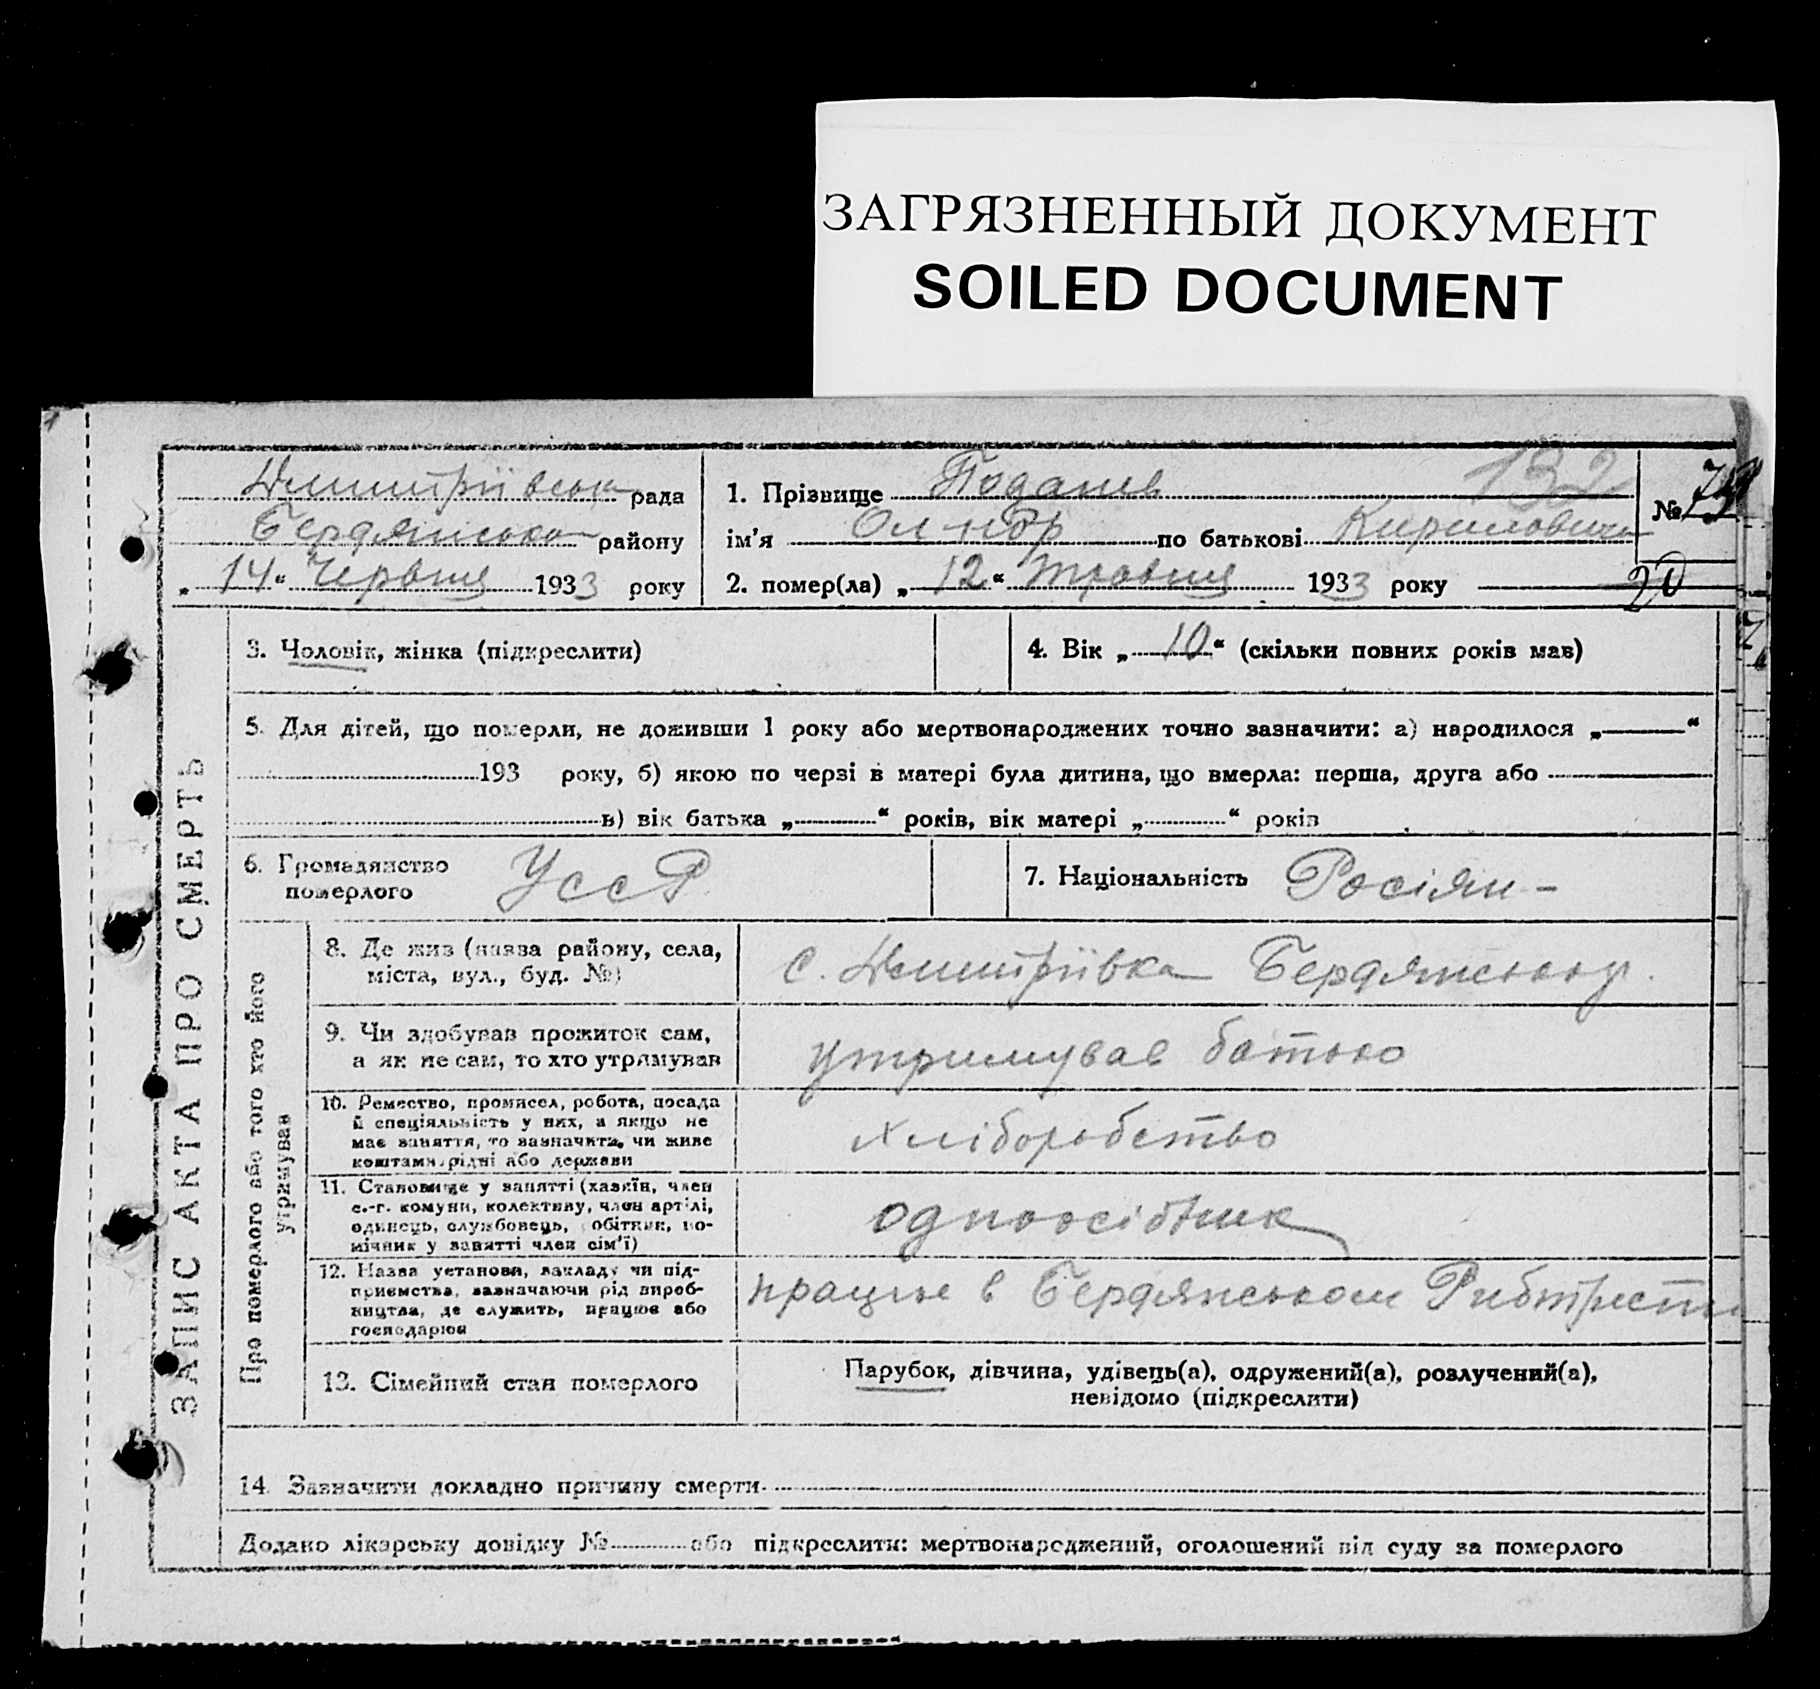 ЗАГРЯЗНЕННЫЙ ДОКУМЕНТ
SOILED DOCUMENT
ЗАПИС АКТА ПРО СМЕРТЬ
Дмитріївська рада
Бердянського району
„14“ Червня 1933 року
1. Прізвище 132
ім'я по батькові Кирилович
2. помер(ла) „12“ Травня 1933 року
№
20
3. Чоловік, жінка (підкреслити)
4. Вік „10“ (скільки повних років мав)
5. Для дітей, що померли, не доживши 1 року або мертвонароджених точно зазначити: а) народилося „ “
193 року, б) якою по черзі в матері була дитина, що вмерла: перша, друга або
в) вік батька „ “ років, вік матері „ “ років
6. Громадянство
померлого УССР
7. Національність Росіян-
Про померлого або того хто його
утримував
8. Де жив (назва району, села,
міста, вул., буд. №)
с. Дмитріївка Бердянськ р.
9. Чи здобував прожиток сам,
а як не сам, то хто утримував
утримував батько
10. Ремество, промисел, робота, посада
й спеціяльність у них, а якщо не
має заняття, то зазначити, чи живе
коштами рідні або держави
хліборобство
11. Становище у занятті (хазяїн, член
с.-г. комуни, колективу, член артілі,
одинець, службовець, робітник, по-
мічник у занятті член сім'ї)
одноосібник
12. Назва установи, закладу чи під-
приємства, зазначаючи рід вироб-
ництва, де служить, працює або
господарює
працює в Бердянськом Рибтресті
13. Сімейний стан померлого
Парубок, дівчина, удівець(а), одружений(а), розлучений(а),
невідомо (підкреслити)
14. Зазначити докладно причину смерти
Додано лікарську довідку № або підкреслити: мертвонароджений, оголошений від суду за померлого